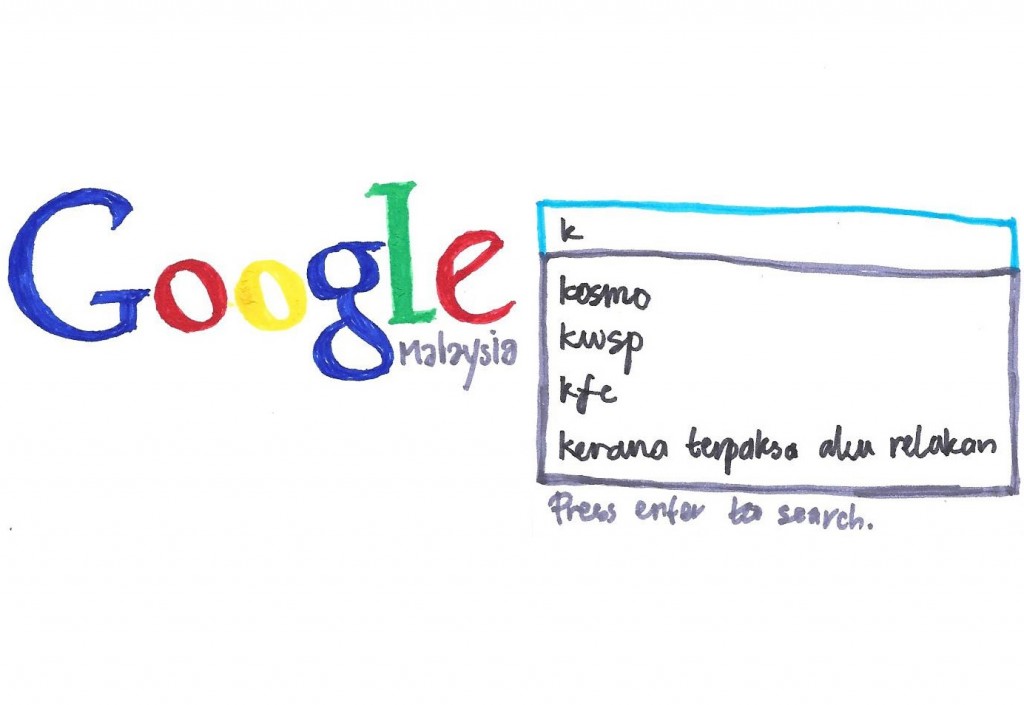 Google
Malaysia
k
kosmo
kwsp
kfc
kerana terpaksa aku relakan
Press enter to search.